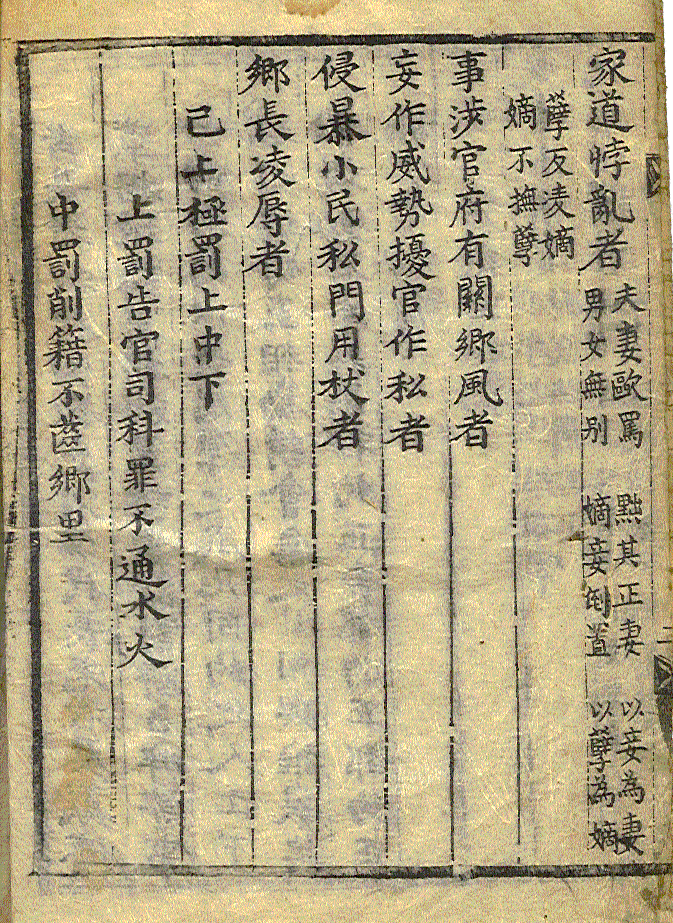 二
家道悖亂者
夫妻歐罵 黜其正妻 以妾為妻
男女無別 嫡妾倒置 以孽為嫡
孽反凌嫡
嫡不撫孽
事涉官府有關鄉風者
妄作威勢擾官作私者
侵暴小民私門用杖者
鄉長凌辱者
已上極罰上中下
上罰告官司科罪不通水火
中罰削籍不齒鄉里